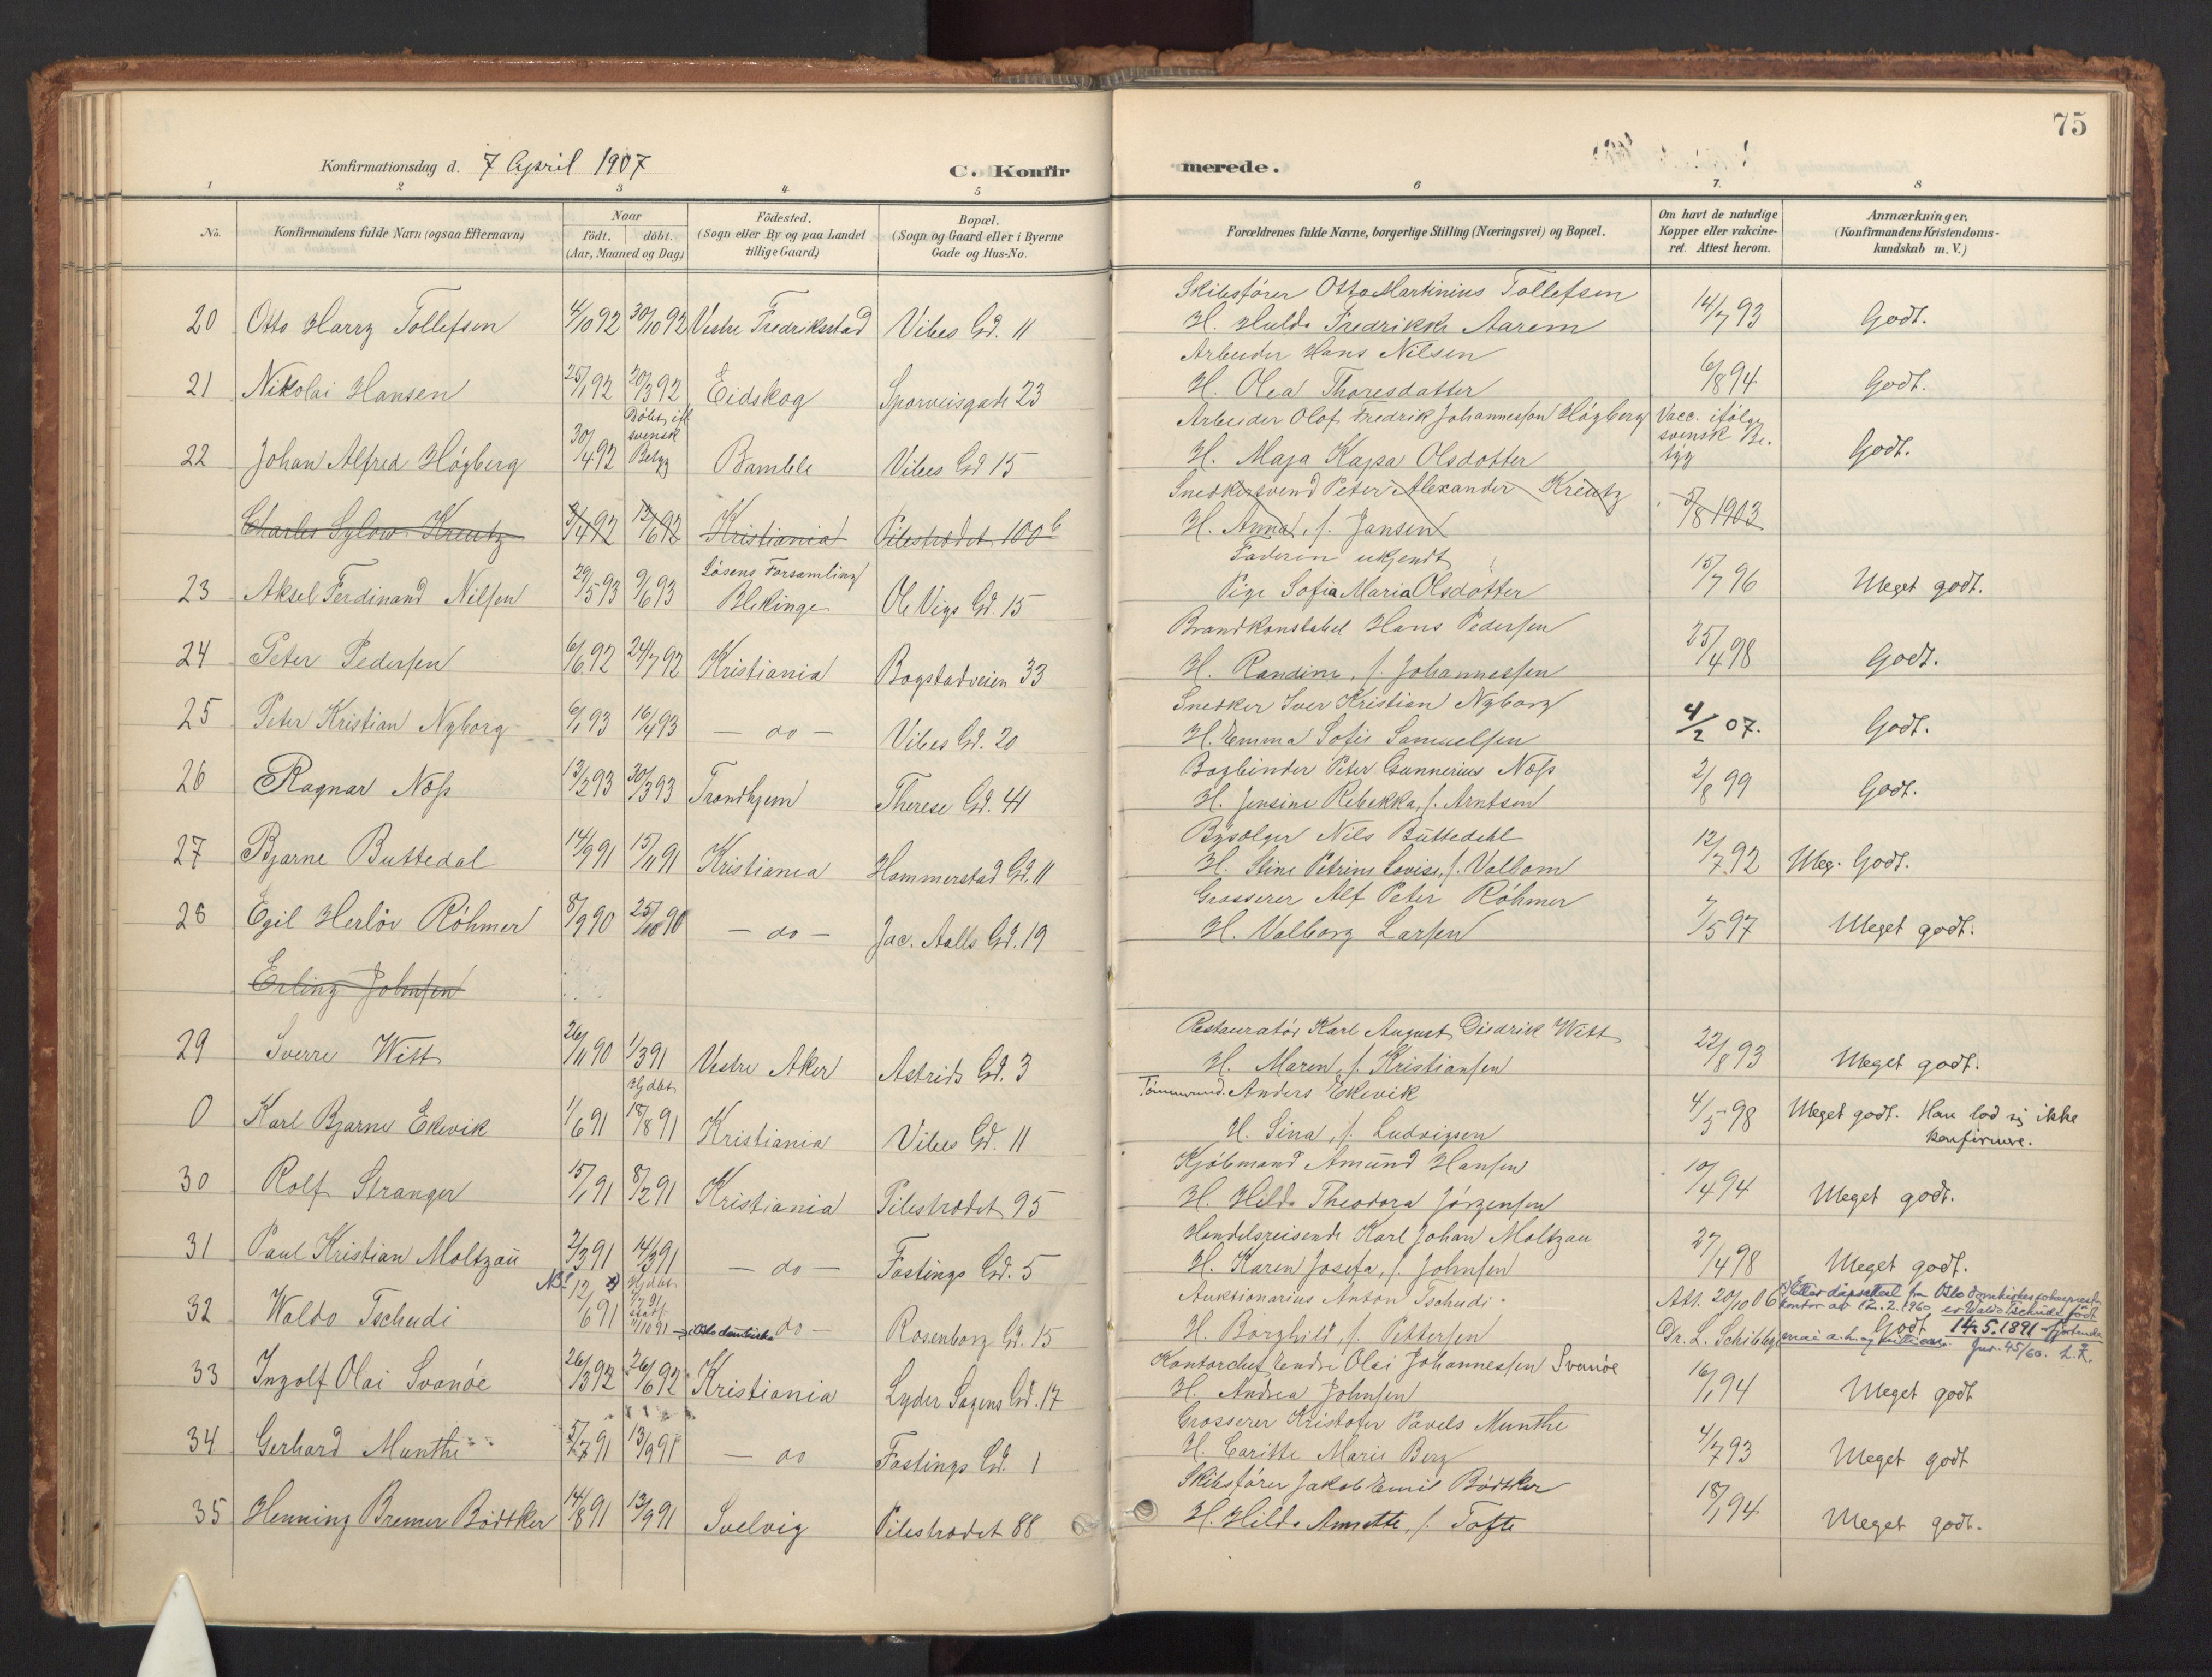 75
Konfirmationsdag d. 7 April 1907
C. Konfirmerede.
1 2 3 4 5 6 7. 8
No.
Konfirmandens fulde Navn (ogsaa Efternavn)
Naar
födt. döbt.
(Aar, Maaned og Dag)
Födested.
(Sogn eller By og paa Landet
tillige Gaard)
Bopæl.
(Sogn og Gaard eller i Byerne
Gade og Hus-No.
Forældrenes fulde Navne, borgerlige Stilling (Næringsvei) og Bopæl.
Om havt de naturlige
Kopper eller vakcine-
ret. Attest herom.
Anmærkninger.
(Konfirmandens Kristendoms-
kundskab m. V.)
Skibsfører Otto Martinius Tollefsen
20 Otto Harry Tollefsen 4/10 92 30/10 92 Vestre Fredriksstad Vibes Gd. 11 H. Hulda Fredrikke Aarem 14/7 93 Godt.
Arbeider Hans Nilsen
21 Nikolai Hansen 25/1 92 20/3 92 Eidskog Sporveisgade 23 H. Olea Thoresdatter 6/8 94 Godt.
Døbt ifl. svensk Betyg
Arbeider Olof Fredrik Johannesson Högberg Vacc. ifølge
svensk Be-
tyg
22 Johan Alfred Högberg 30/4 92 Bamble Vibes Gd 15 H. Maja Kajsa Olsdotter Godt.
Snedkersvend Peter Alexander Kreutz
Charles Sylow Kreutz 3/4 92 12/6 92 Kristiania Pilestrædet 100b H. Anna, f. Jansen 5/8 1903
Faderen ukjendt
Lösens Forsamling
23 Aksel Ferdinand Nilsen 29/5 93 9/6 93 Blekinge Ole Vigs Gd 15 Pige Sofia Maria Olsdotter 15/7 96 Meget godt.
Brandkonstabel Hans Pedersen
24 Peter Pedersen 6/6 92 24/7 92 Kristiania Bogstadveien 33 H. Randine, f. Johannessen 25/4 98 Godt.
Snedker Iver Kristian Nyborg
25 Peter Kristian Nyborg 6/1 93 16/4 93 — do — Vibes Gd. 20 H. Emma Sofie Samuelsen 4/2 07. Godt.
Bogbinder Peter Gunnerius Næss
26 Ragnar Næss 13/2 93 30/3 93 Trondhjem Therese Gd. 41 H. Jensine Rebekka, f. Arntsen 2/8 99 Godt.
Nils Büttedahl
27 Bjarne Buttedal 14/9 91 15/11 91 Kristiania Hammerstad Gd. 11 H. Stine Petrine Lovise, f. Valbom 12/7 92 Meg. Godt.
Grosserer Alf Peter Röhmer
28 Egil Herløv Röhmer 8/9 90 25/10 90 — do — Jac. Aalls Gd. 19 H. Valborg Larsen 7/5 97 Meget godt.
Erling Johnsen
Restauratør Karl August Diedrik Witt
29 Sverre Witt 26/11 90 1/3 91 Vestre Aker Astrids Gd. 3 H. Maren, f. Kristiansen 22/8 93 Meget godt.
Hj.døbt
Tømmermd. Anders Ekevik
0 Karl Bjarne Ekevik 1/6 91 18/8 91 Kristiania Vibes Gd. 11 H. Sina, f. Ludvigsen 4/5 98 Meget godt. Han lod sig ikke
konfirmere.
Kjøbmand Amund Hansen
30 Rolf Stranger 15/1 91 8/2 91 Kristiania Pilestrædet 95 H. Hilda Theodora Jörgensen 10/4 94 Meget godt.
Handelsreisende Karl Johan Moltzau
31 Paul Kristian Moltzau 2/3 91 14/3 91 — do — Fastings Gd. 5 H. Karen Josefa, f. Johnsen 27/4 98 Meget godt.
Auktionarius Anton Tschudi. Att. 20/10 06
32 Waldo Tschudi NB! 12/6 91 x) Hj.døbt — do — Rosenborg Gd. 15 H. Borghild, f. Pettersen Dr. L. Schibbye Godt
x) Etter dåpsattest fra Oslo domkirkes sokneprest-
kontor av 12.2.1960 er Waldo Tschudi født
14.5.1891 - fjortende
mai Jnr. 45/60. L.Z.
Kontorchef Endre Olai Johannessen Svanøe
33 Ingolf Olai Svanøe 26/3 92 26/6 92 Kristiania Lyder Sagens Gd. 17 H. Andrea Johnsen 16/1 94 Meget godt
Grosserer Kristofer Pavels Munthe
34 Gerhard Munthe 5/7 91 13/9 91 — do Fastings Gd. 1 H. Caritte Marie Berg 4/7 93 Meget godt
Skibsfører Jakob Emil Bödtker
35 Henning Bremer Bödtker 14/8 91 13/9 91 Svelvig Pilestrædet 88 H. Hilda Annette, f. Tofte 18/1 94 Meget godt.